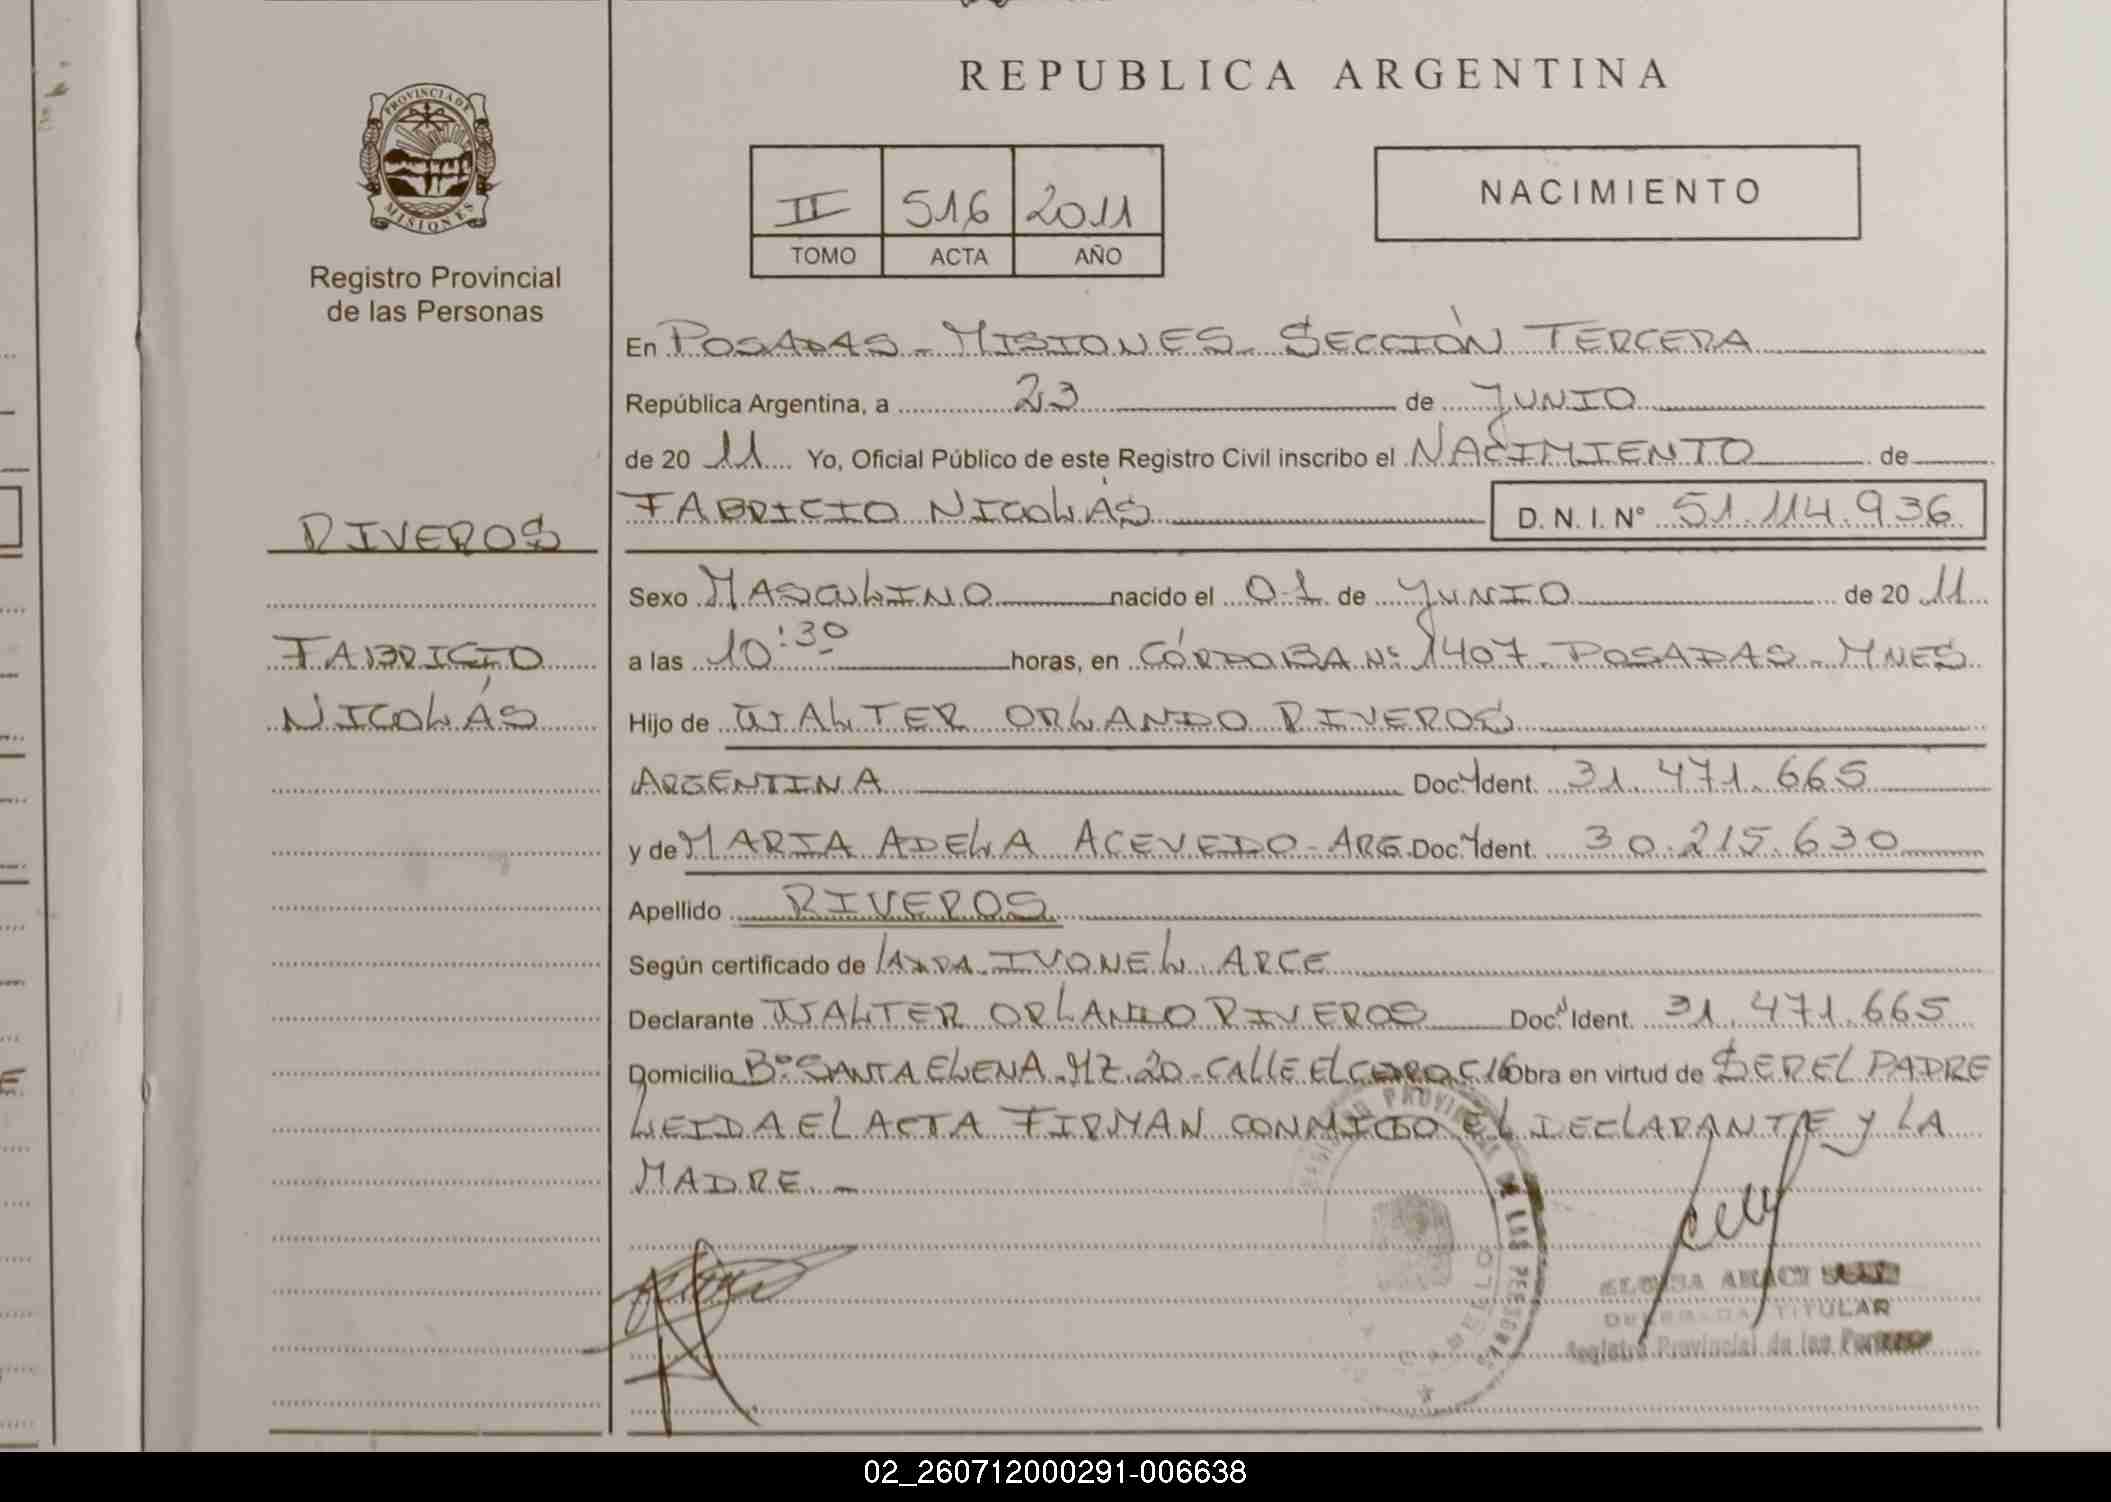 REPUBLICA ARGENTINA
PROVINCIA DE
MISIONES
Registro Provincial
de las Personas
II 516 2011
TOMO ACTA AÑO
NACIMIENTO
En POSADAS - MISIONES - SECCIÓN TERCERA
República Argentina, a 23 de JUNIO
de 20 11 Yo, Oficial Público de este Registro Civil inscribo el NACIMIENTO de
FABRICIO NICOLÁS D. N. I. N° 51.114.936
RIVEROS
FABRICIO
NICOLÁS
Sexo MASCULINO nacido el 01 de JUNIO de 20 11
a las 10:30 horas, en CÓRDOBA N° 1407 - POSADAS - MNES
Hijo de WALTER ORLANDO RIVEROS
ARGENTINA Doc. Ident. 31.471.665
y de MARIA ADELA ACEVEDO - ARG. Doc. Ident. 30.215.630
Apellido RIVEROS
Según certificado de IVONE L. ARCE
Declarante WALTER ORLANDO RIVEROS Doc. Ident. 31.471.665
Domicilio B° SANTA ELENA - MZ. 20 - CALLE EL C 16 Obra en virtud de SER EL PADRE
LEIDA EL ACTA FIRMAN CONMIGO EL DECLARANTE Y LA
MADRE. -
TITULAR
Registro Provincial de las Personas
02_260712000291-006638